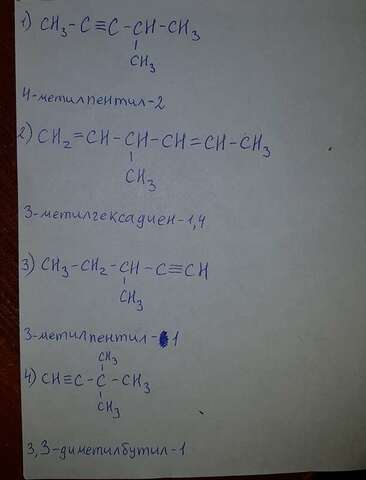 1) CH₃-C≡C-CH-CH₃
CH₃
4-метилпентил-2
2) CH₂=CH-CH-CH=CH-CH₃
CH₃
3-метилгексадиен-1,4
3) CH₃-CH₂-CH-C≡CH
CH₃
3-метилпентил-1
CH₃
4) CH≡C-C-CH₃
CH₃
3,3-диметилбутил-1